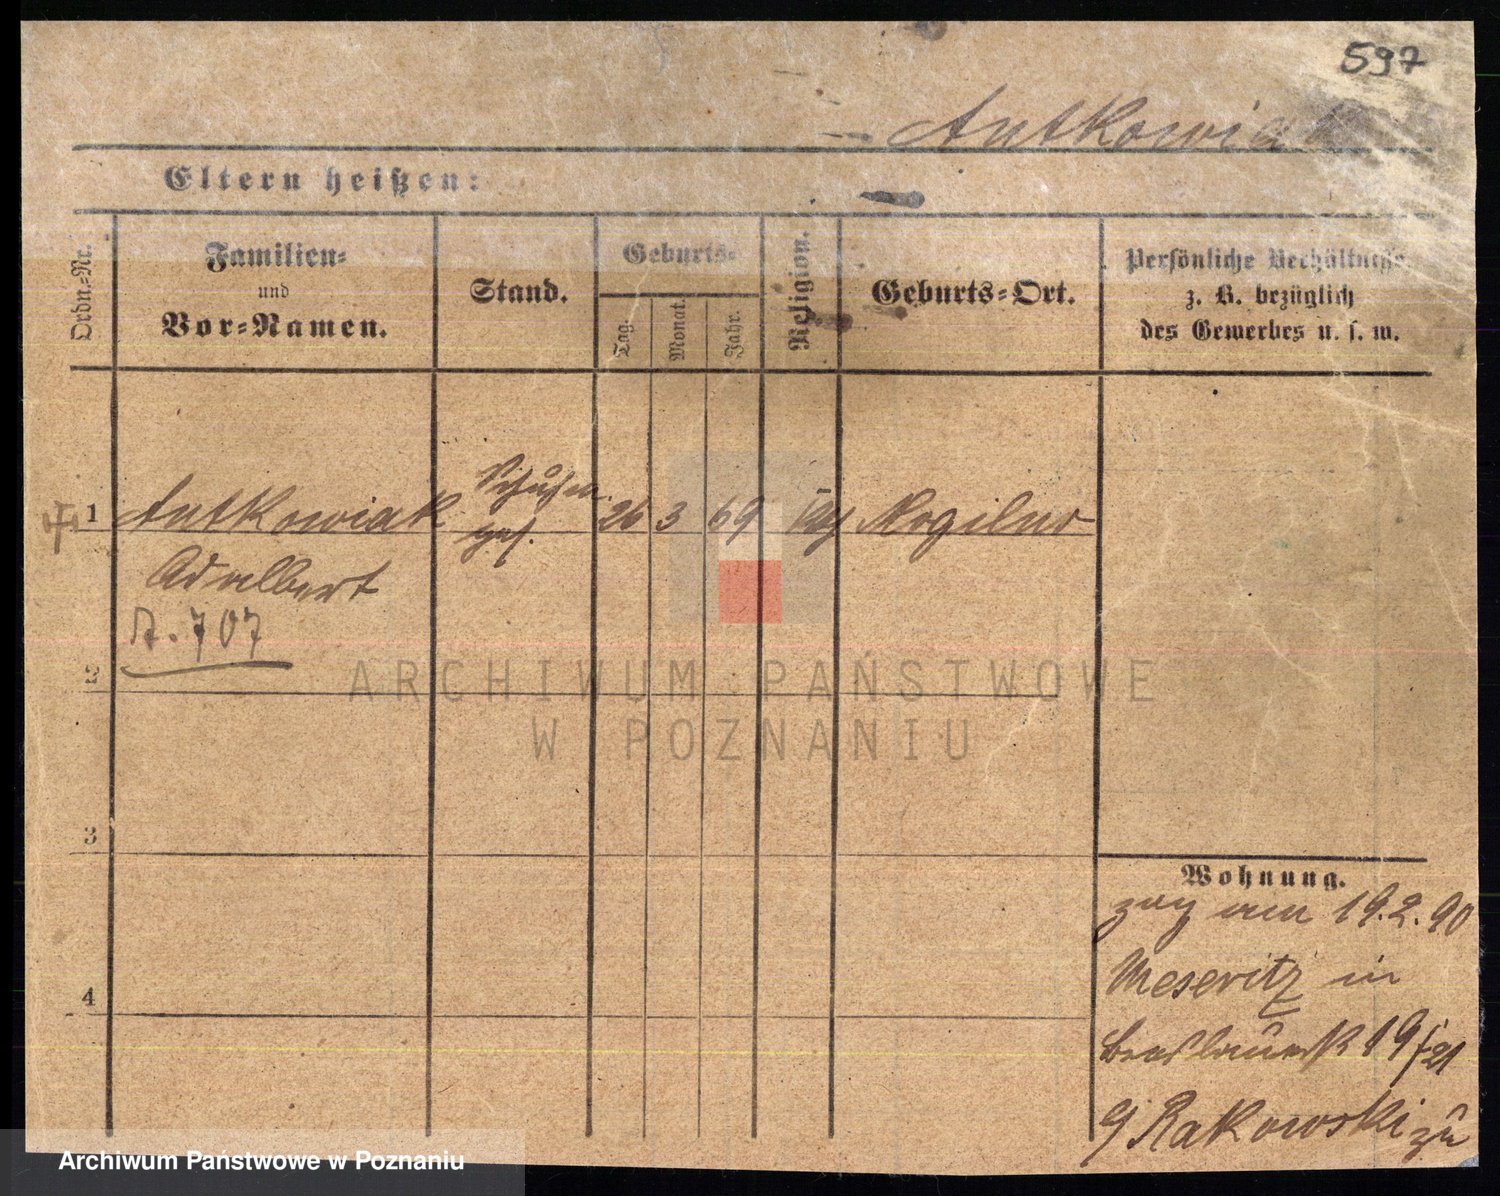 597
Antkowiak
Eltern heißen:
Ordn.-Nr.
Familien-
und
Vor-Namen.
Stand.
Geburts-
Tag.
Monat.
Jahr.
Religion.
Geburts-Ort.
Persönliche Verhältnisse
z. B. bezüglich
des Gewerbes u. s. w.
1 Antkowiak 26 3 69 Mogilno
Adalbert
A. 707
2
3
4
Wohnung.
zog am 19.2.90
Meseritz in
19
Rakowski zu
ARCHIWUM PAŃSTWOWE
W POZNANIU
Archiwum Państwowe w Poznaniu